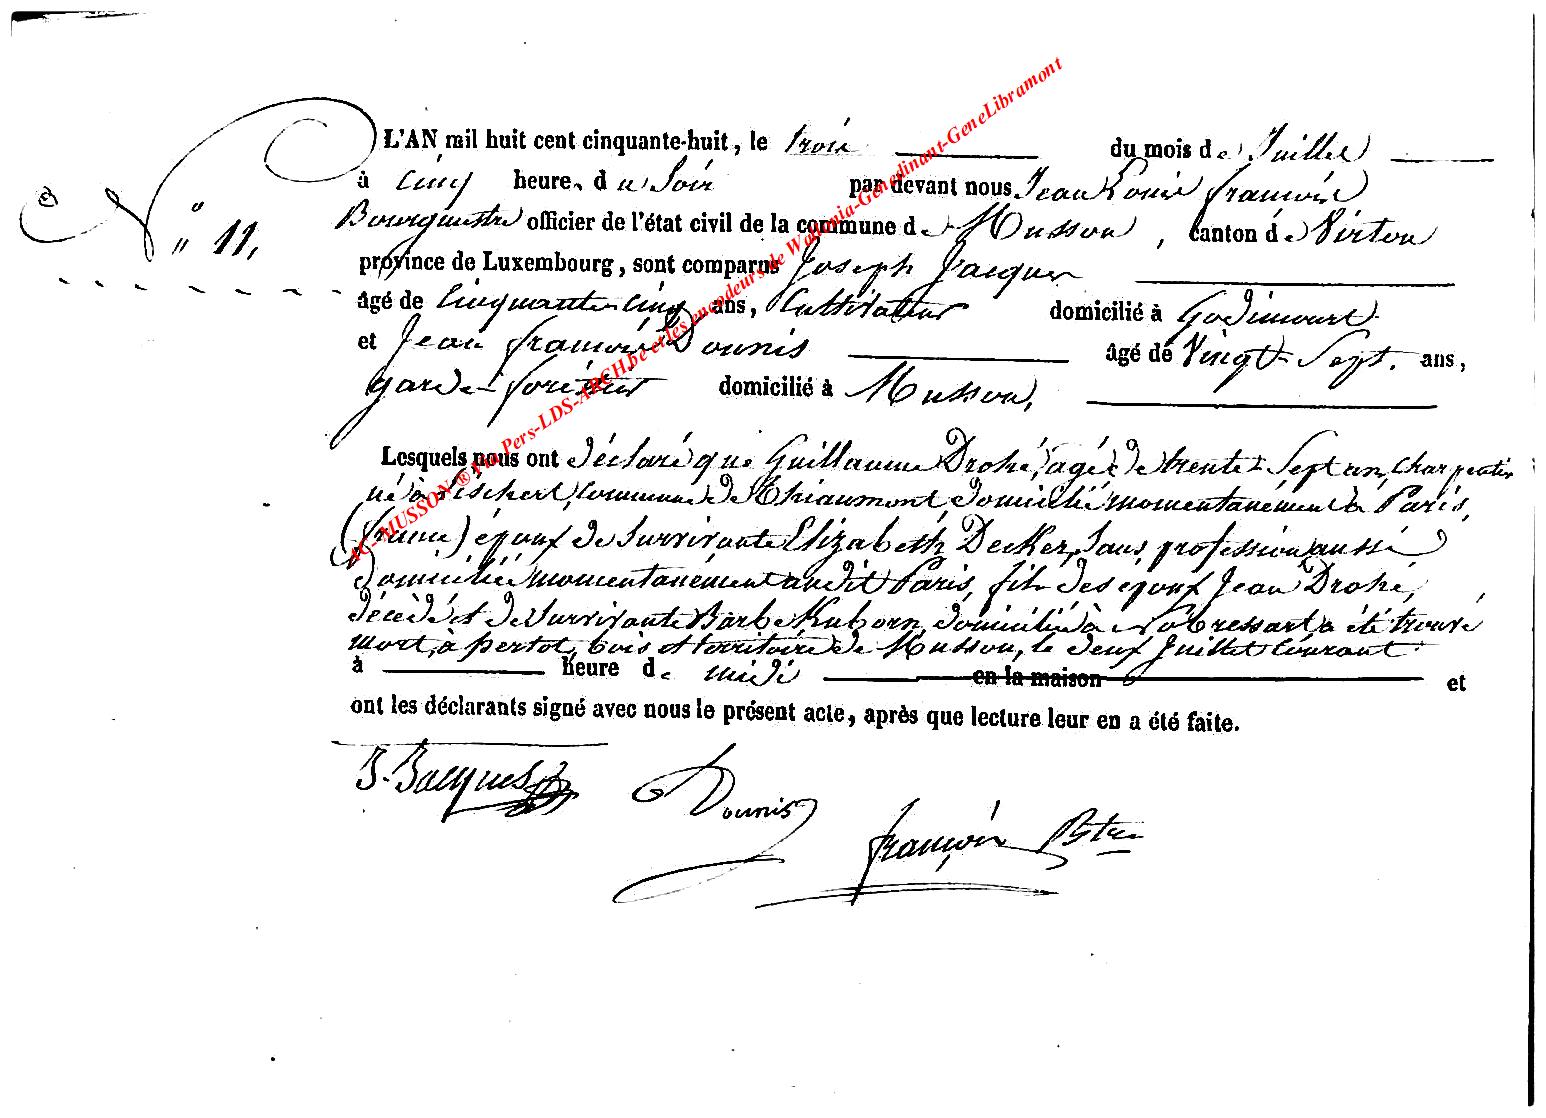 L'AN mil huit cent cinquante-huit, le trois du mois de Juillet
N° 11,
à cinq heures du Soir par devant nous Jean Louis françois
Bourguestre officier de l'état civil de la commune de Musson, canton de Virton
province de Luxembourg, sont comparus Joseph Jacques
âgé de Cinquante-cinq ans, Cultivateur domicilié à Godincourt
et Jean françois Dounis âgé de Vingt-Sept. ans,
garde-forestier domicilié à Musson,
Lesquels nous ont déclaré que Guillaume Droké, agé de trente-Sept ans, charpentier
né à Lischert, Commune de Thiaumont, domicilié momentanément à Paris,
(france) époux de Survivante Elizabeth Decker, Sans profession aussi
domiciliée momentanément audit Paris, fils des époux Jean Droké,
décédé et de Survivante Barbe Kuborn, domiciliée à Nobressart a été trouvé
mort, à pertot, bois et territoire de Musson, le deux Juillet Courant
à heure de midi en la maison et
ont les déclarants signé avec nous le présent acte, après que lecture leur en a été faite.
J. Jacques Dounis
françois Bstre
AC-MUSSON ® Via Pers-LDS-ARCH.be et les encodeurs de Wallonia-Genedinant-GeneLibramont